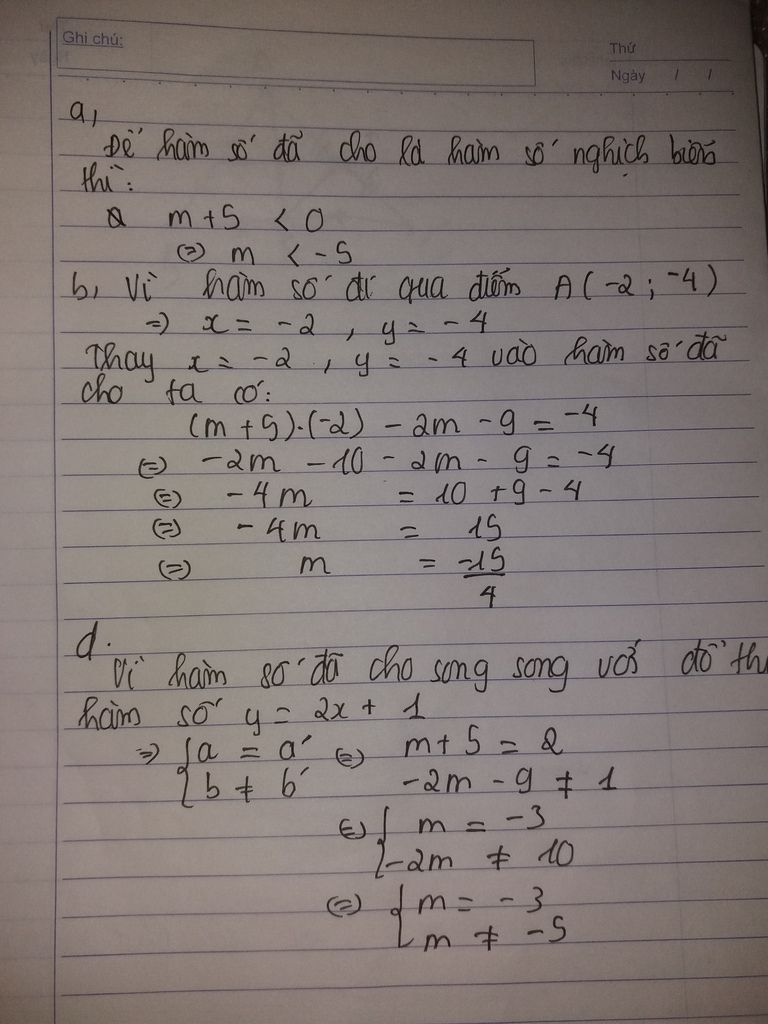 Ghi chú:
Thứ
Ngày / /
a,
Để hàm số đã cho là hàm số nghịch biến
thì:
m+5 < 0
(=) m < -5
b, Vì hàm số đi qua điểm A(-2; -4)
=) x = -2 , y = -4
Thay x = -2 , y = -4 vào hàm số đã
cho ta có:
(m+5).(-2) - 2m - 9 = -4
(=) -2m - 10 - 2m - 9 = -4
(=) -4m = 10 + 9 - 4
(=) -4m = 15
(=) m = -15/4
d.
Vì hàm số đã cho song song với đồ th
hàm số y = 2x + 1
=) { a = a' (=) m+5 = 2
{ b ≠ b' -2m - 9 ≠ 1
(=) { m = -3
{ -2m ≠ 10
(=) { m = -3
{ m ≠ -5